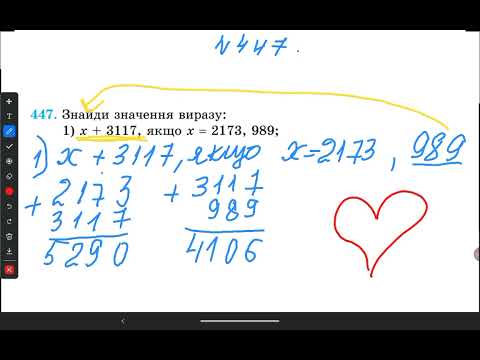 №447.
447. Знайди значення виразу:
1) x + 3117, якщо x = 2173, 989;
1) x + 3117, якщо x = 2173, 989
+ 2173 + 3117
3117 989
5290 4106